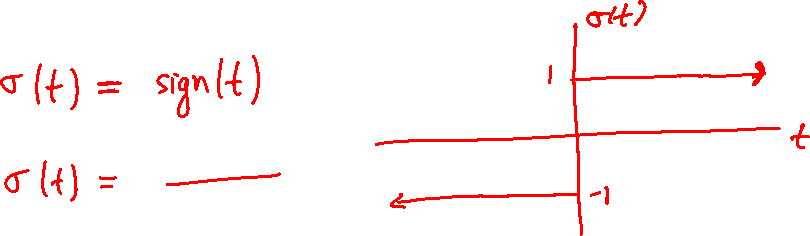 σ(t) = sign(t)
σ(t) = ___
σ(t)
1
t
-1